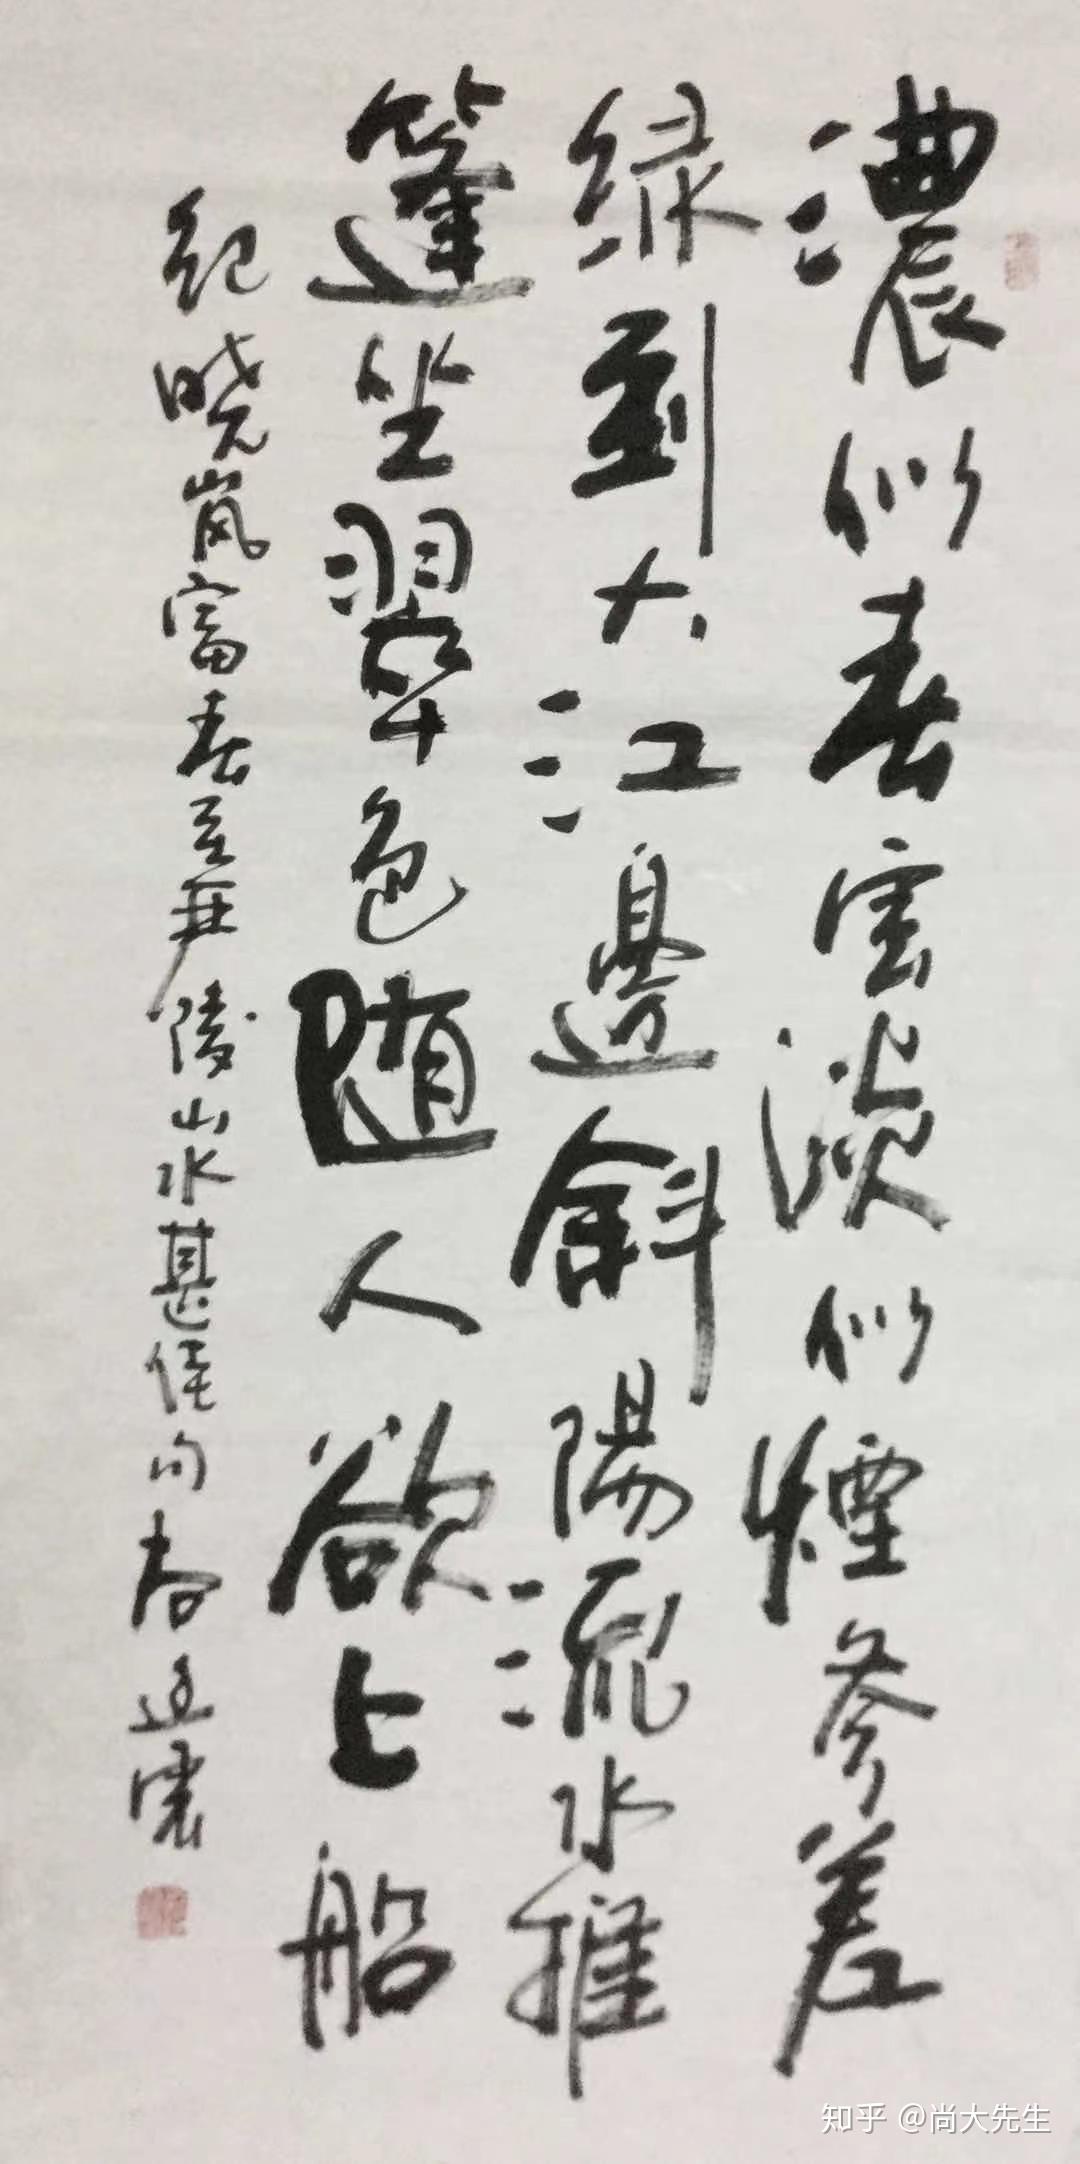 濃似春雲淡似煙参差
绿到大江邊斜陽流水推
篷坐翠色随人欲上船
纪晓岚富春至严陵山水甚佳句
知乎 @尚大先生